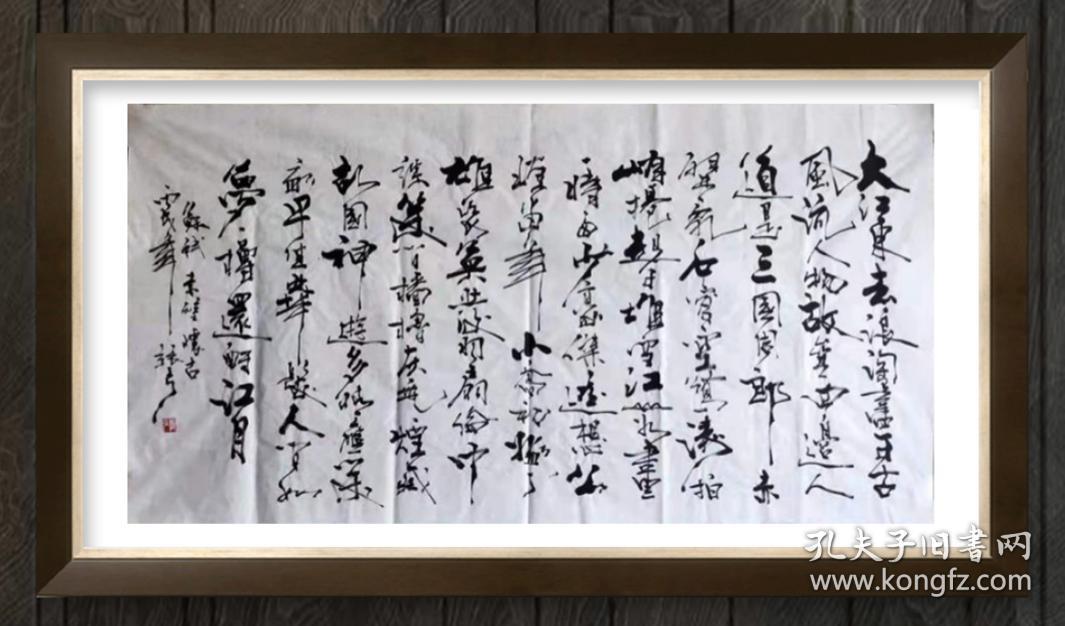 大江東去浪淘盡千古
風流人物故壘西邊人
道是三國周郎赤
壁亂石穿空驚濤拍
岸捲起千堆雪江山如畫
一時多少豪傑遙想公
瑾當年小喬初嫁了
雄姿英發羽扇綸巾
談笑間檣櫓灰飛煙滅
故國神遊多情應笑
我早生華髮人間如
夢一樽還酹江月
蘇軾赤壁懷古
戌年
孔夫子旧書网
www.kongfz.com